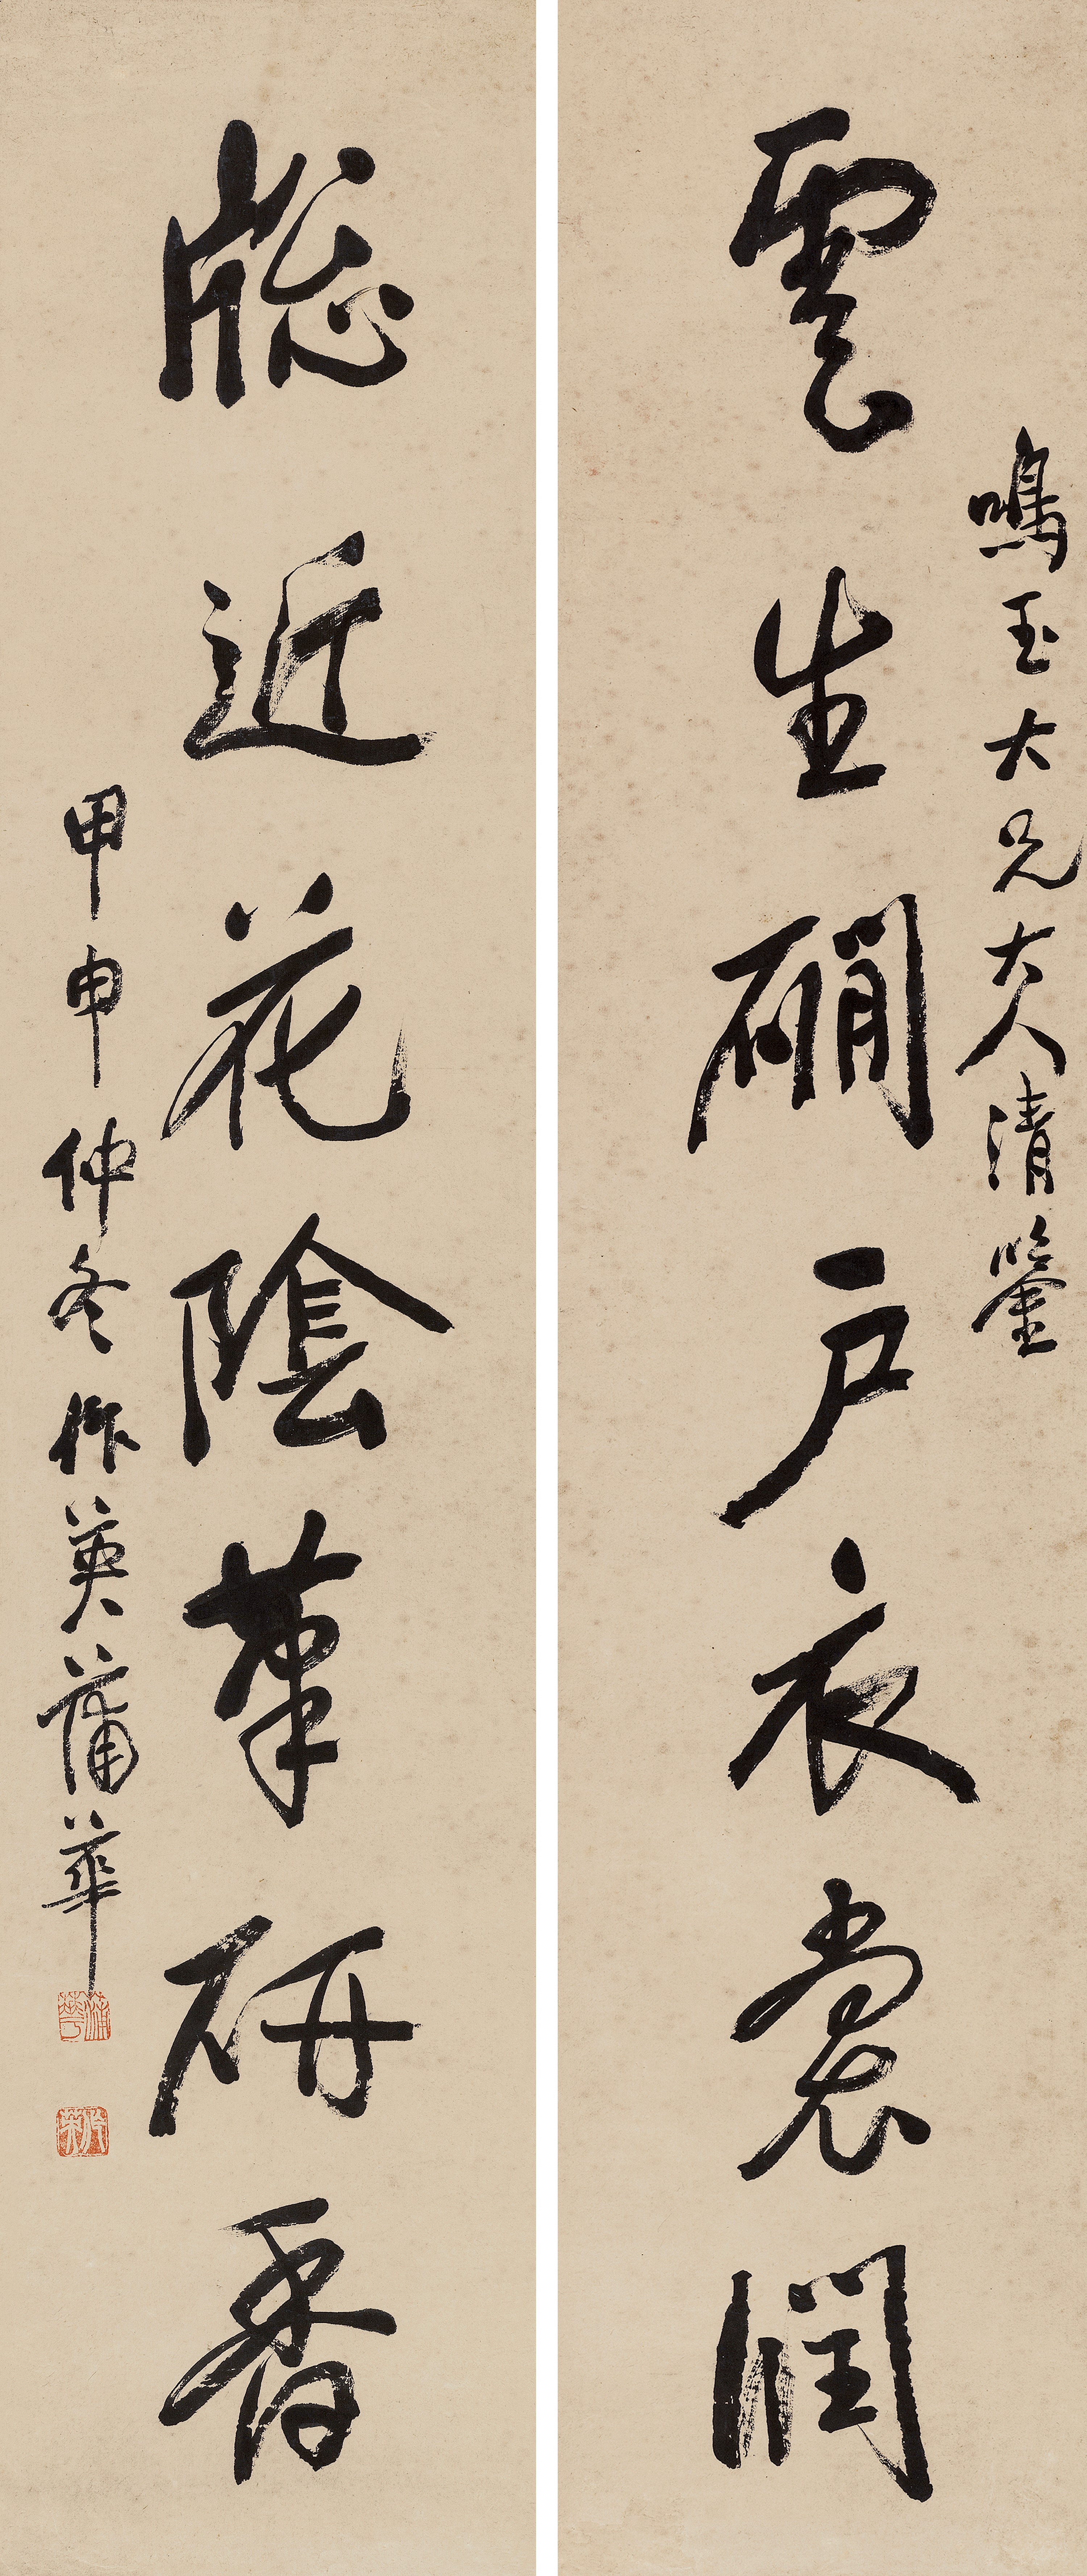 鳴玉大兄大人清鑒
雲生磵戶衣裳潤
牕近花陰筆研香
甲申仲冬作英蒲華
蒲華
作英